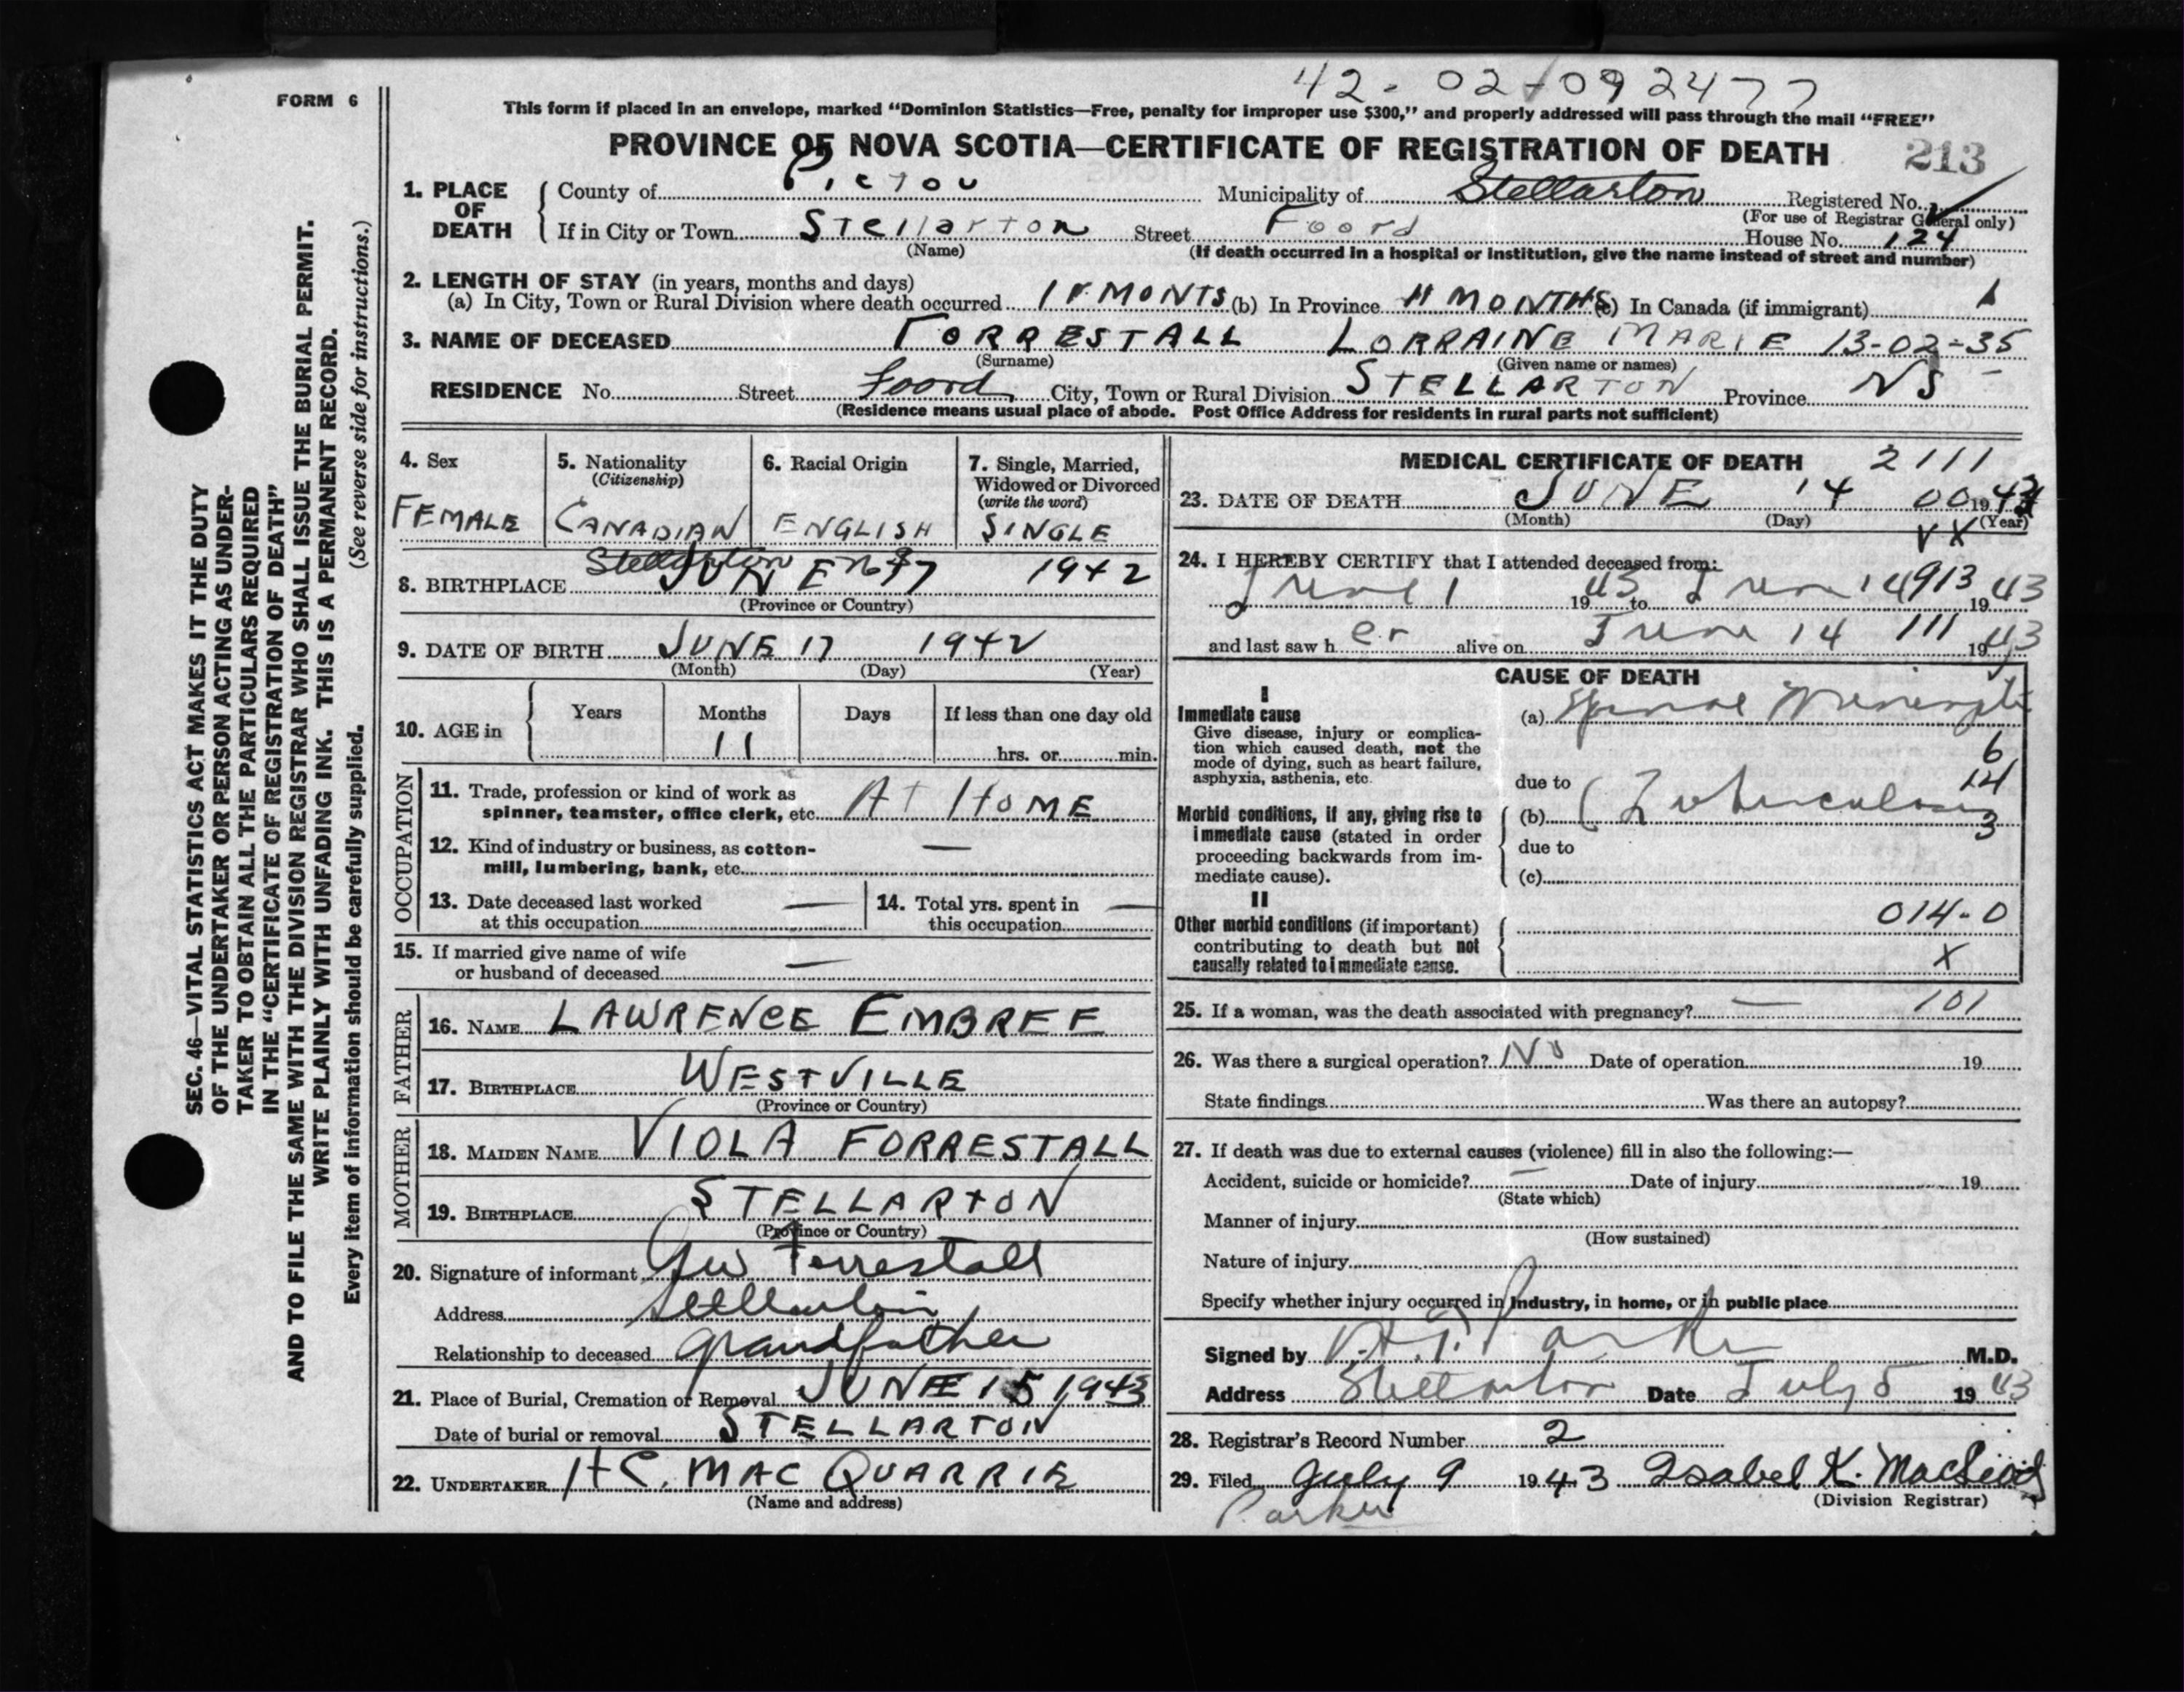 42-02-092477
FORM 6
This form if placed in an envelope, marked "Dominion Statistics—Free, penalty for improper use $300," and properly addressed will pass through the mail "FREE"
PROVINCE OF NOVA SCOTIA—CERTIFICATE OF REGISTRATION OF DEATH 213
SEC. 46—VITAL STATISTICS ACT MAKES IT THE DUTY
OF THE UNDERTAKER OR PERSON ACTING AS UNDER-
TAKER TO OBTAIN ALL THE PARTICULARS REQUIRED
IN THE "CERTIFICATE OF REGISTRATION OF DEATH"
AND TO FILE THE SAME WITH THE DIVISION REGISTRAR WHO SHALL ISSUE THE BURIAL PERMIT.
WRITE PLAINLY WITH UNFADING INK. THIS IS A PERMANENT RECORD.
Every item of information should be carefully supplied. (See reverse side for instructions.)
1. PLACE OF DEATH County of Pictou Municipality of Stellarton Registered No.
(For use of Registrar General only)
If in City or Town Stellarton Street Foord House No. 124
(Name) (If death occurred in a hospital or institution, give the name instead of street and number)
2. LENGTH OF STAY (in years, months and days)
(a) In City, Town or Rural Division where death occurred 11 MONTS (b) In Province 11 MONTHS (c) In Canada (if immigrant) 1
3. NAME OF DECEASED FORRESTALL LORRAINE MARIE 13-02-35
(Surname) (Given name or names)
RESIDENCE No. Street Foord City, Town or Rural Division STELLARTON Province NS
(Residence means usual place of abode. Post Office Address for residents in rural parts not sufficient)
4. Sex
FEMALE
5. Nationality
(Citizenship)
CANADIAN
6. Racial Origin
ENGLISH
7. Single, Married,
Widowed or Divorced
(write the word)
SINGLE
Stellarton N.S
8. BIRTHPLACE JUNE 17 1942
(Province or Country)
9. DATE OF BIRTH JUNE 17 1942
(Month) (Day) (Year)
10. AGE in Years Months Days If less than one day old
11 hrs. or min.
OCCUPATION
11. Trade, profession or kind of work as
spinner, teamster, office clerk, etc. AT HOME
12. Kind of industry or business, as cotton-
mill, lumbering, bank, etc. —
13. Date deceased last worked
at this occupation —
14. Total yrs. spent in
this occupation —
15. If married give name of wife
or husband of deceased —
FATHER
16. NAME LAWRENCE EMBREE
17. BIRTHPLACE WESTVILLE
(Province or Country)
MOTHER
18. MAIDEN NAME VIOLA FORRESTALL
19. BIRTHPLACE STELLARTON
(Province or Country)
20. Signature of informant Geo Forrestall
Address Stellarton
Relationship to deceased grandfather
21. Place of Burial, Cremation or Removal JUNE 15 1943
Date of burial or removal STELLARTON
22. UNDERTAKER H C. MAC QUARRIE
(Name and address)
MEDICAL CERTIFICATE OF DEATH 2111
23. DATE OF DEATH JUNE 14 00 1943
(Month) (Day) (Year)
24. I HEREBY CERTIFY that I attended deceased from:
June 1 1943 to June 14 913 1943
and last saw her alive on June 14 111 1943
CAUSE OF DEATH
I
Immediate cause
Give disease, injury or complica-
tion which caused death, not the
mode of dying, such as heart failure,
asphyxia, asthenia, etc.
(a) Spinal Meningitis
6
due to 14
Morbid conditions, if any, giving rise to
immediate cause (stated in order
proceeding backwards from im-
mediate cause).
(b) (Tuberculosis 3
due to
(c)
II
Other morbid conditions (if important)
contributing to death but not
causally related to immediate cause.
014-0
X
25. If a woman, was the death associated with pregnancy? — 101
26. Was there a surgical operation? No Date of operation 19
State findings Was there an autopsy?
27. If death was due to external causes (violence) fill in also the following:—
Accident, suicide or homicide? — Date of injury 19
(State which)
Manner of injury
(How sustained)
Nature of injury
Specify whether injury occurred in industry, in home, or in public place
Signed by Parker M.D.
Address Stellarton Date July 5 1943
28. Registrar's Record Number 2
29. Filed July 9 1943 Isabel K. MacLeod
(Division Registrar)
Parker